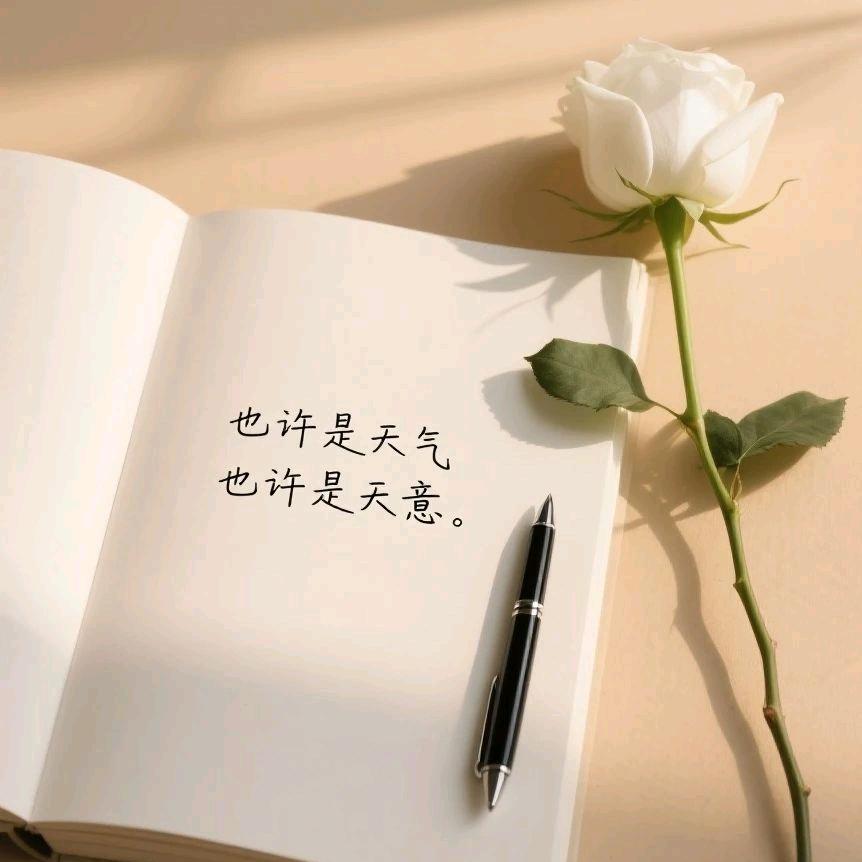 也许是天气
也许是天意。